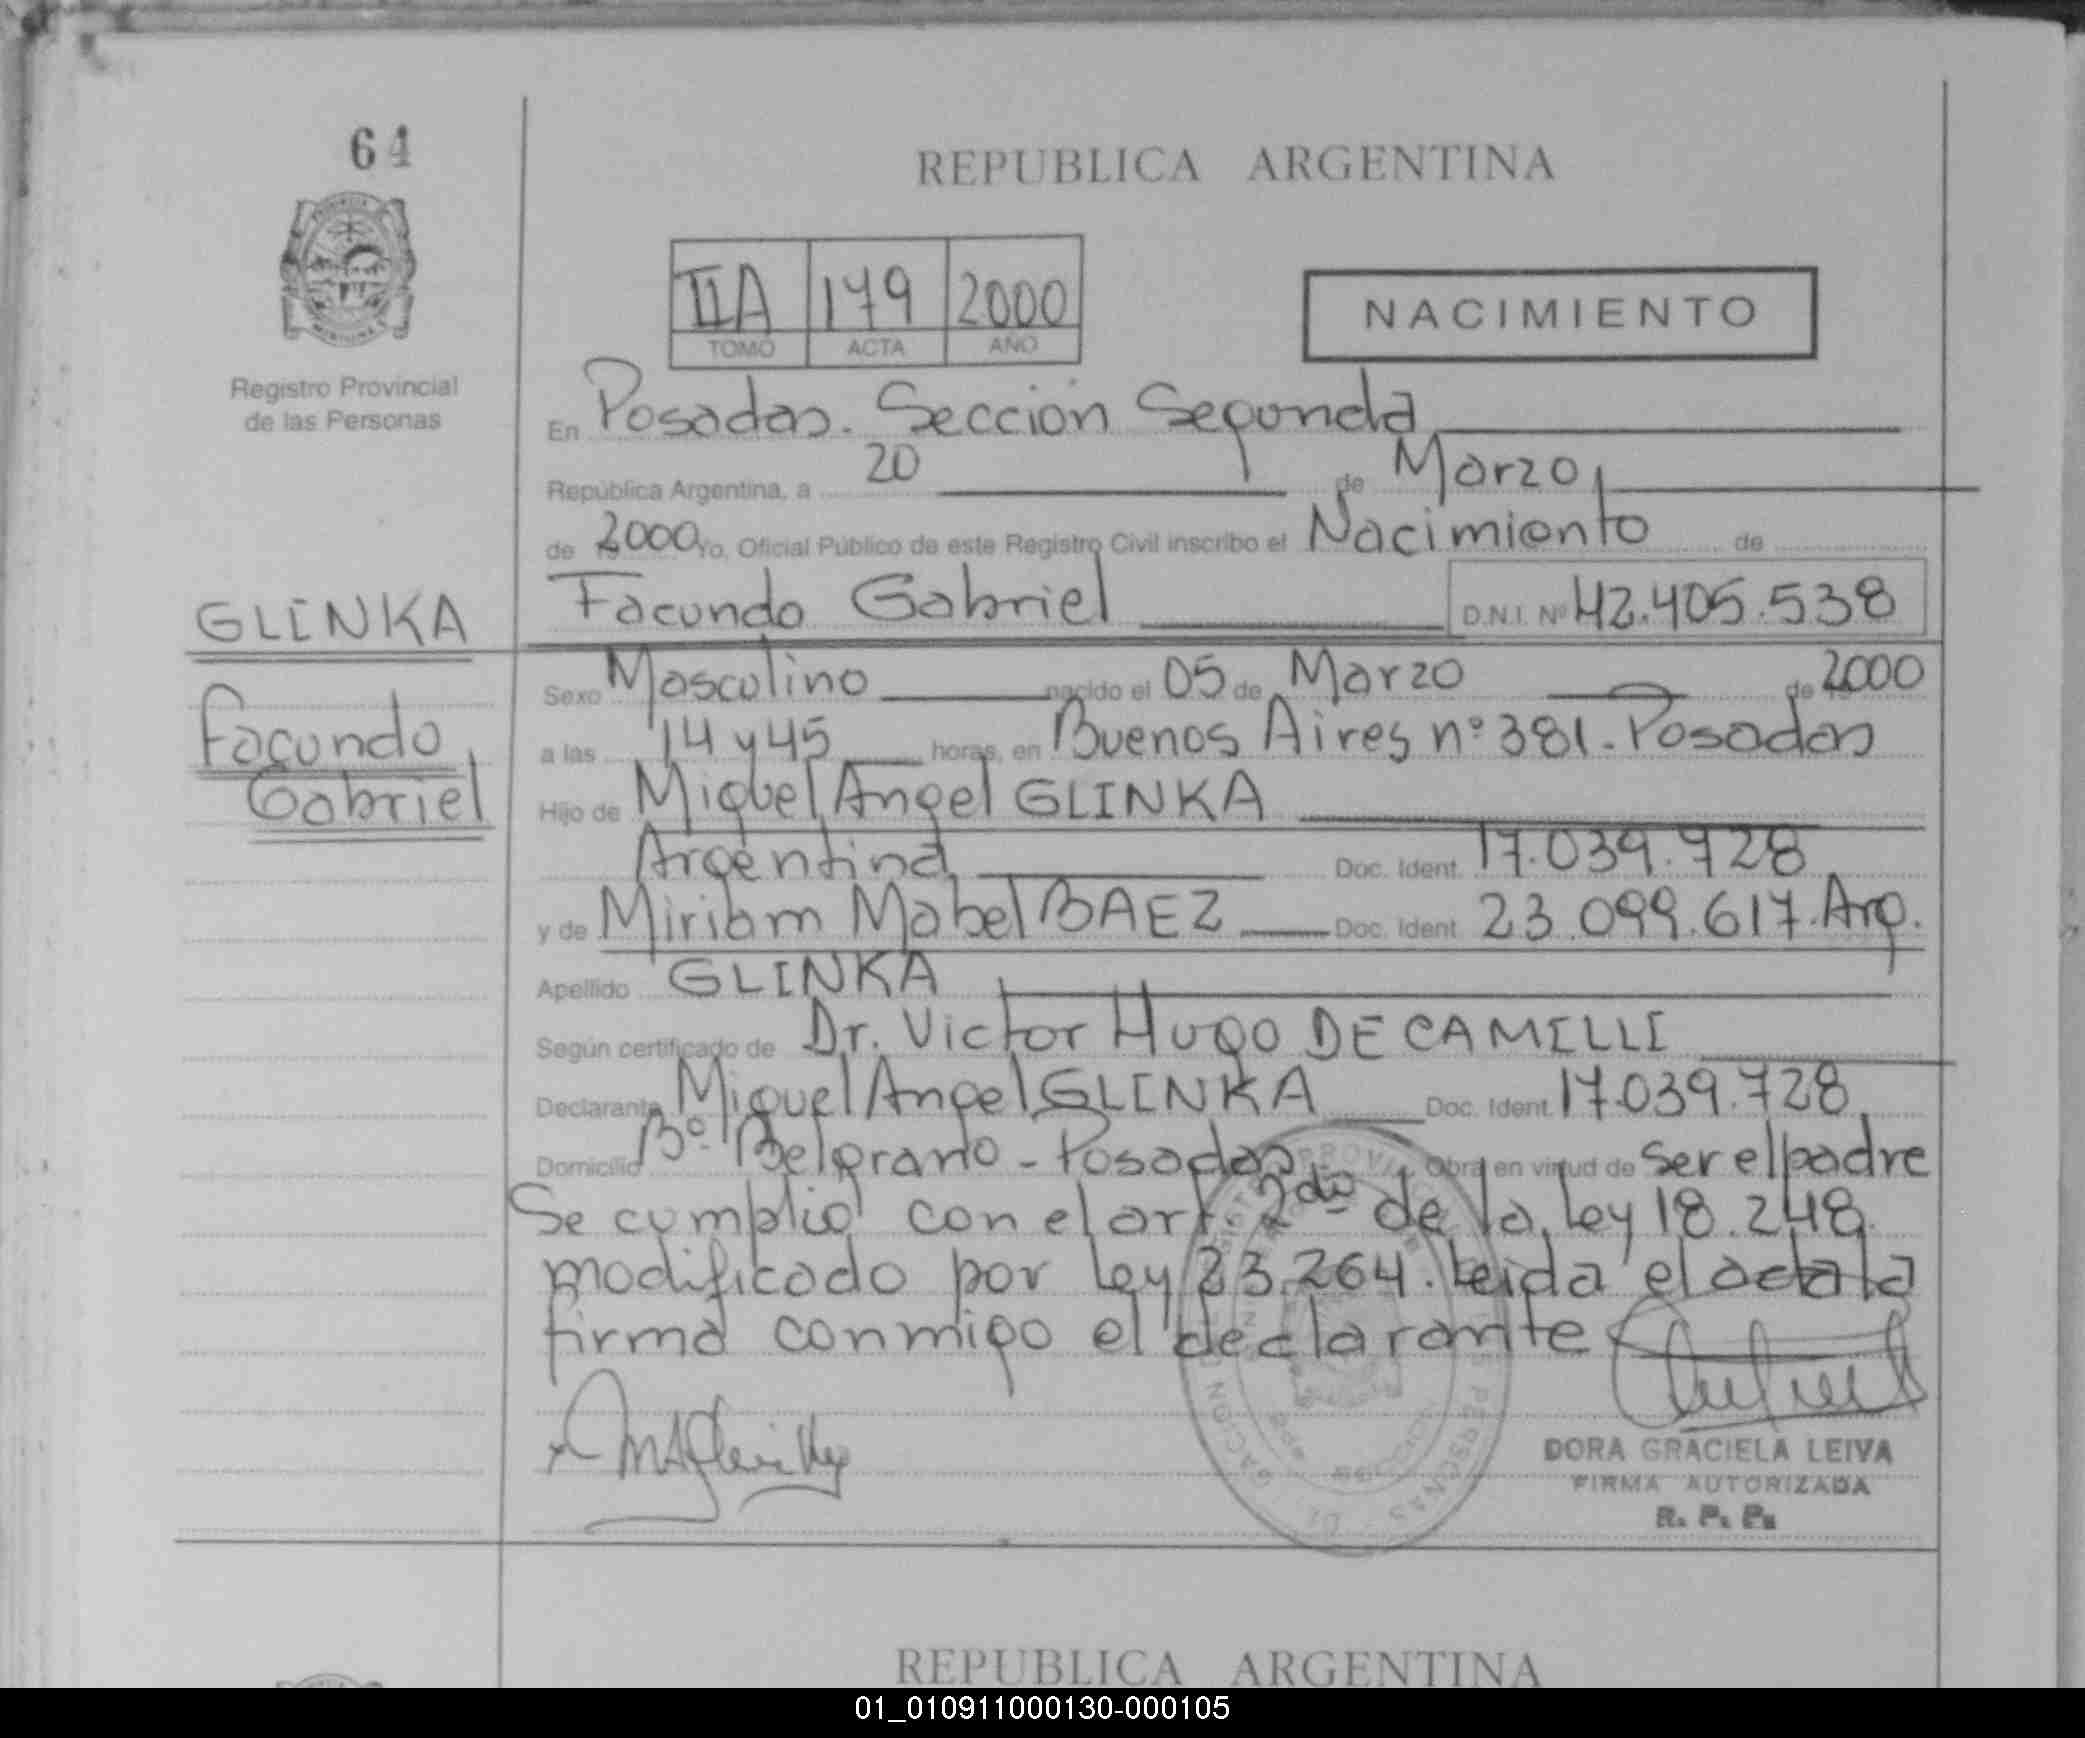 64
REPUBLICA ARGENTINA
IIA 179 2000
TOMO ACTA AÑO
NACIMIENTO
Registro Provincial
de las Personas
En Posadas. Sección Segunda
República Argentina, a 20 de Marzo
de 2000 Yo, Oficial Público de este Registro Civil inscribo el Nacimiento de
Facundo Gabriel D.N.I. Nº 42.405.538
GLINKA
Facundo
Gabriel
Sexo Masculino nacido el 05 de Marzo de 2000
a las 14 y 45 horas, en Buenos Aires nº 381. Posadas
Hijo de Miguel Angel GLINKA
Argentina Doc. Ident. 17.039.728
y de Miriam Mabel BAEZ Doc. Ident. 23.099.617. Arg.
Apellido GLINKA
Según certificado de Dr. Victor Hugo DE CAMILLI
Declarante Miguel Angel GLINKA Doc. Ident. 17.039.728
Domicilio Bº. Belgrano - Posadas Obra en virtud de ser el padre
Se cumplió con el art. 2do de la ley 18.248
modificado por ley 23.264. Leida el acta la
firma conmigo el declarante
DORA GRACIELA LEIVA
FIRMA AUTORIZADA
R. P. P.
REPUBLICA ARGENTINA
01_010911000130-000105